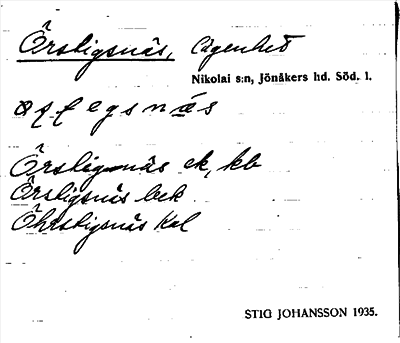 Örstigsnäs, lägenhet
Nikolai s:n, Jönåkers hd. Söd. l.
Örstigsnäs ek, kb
Örstigsnäs bek
Öhrstigsnäs Kal
STIG JOHANSSON 1935.